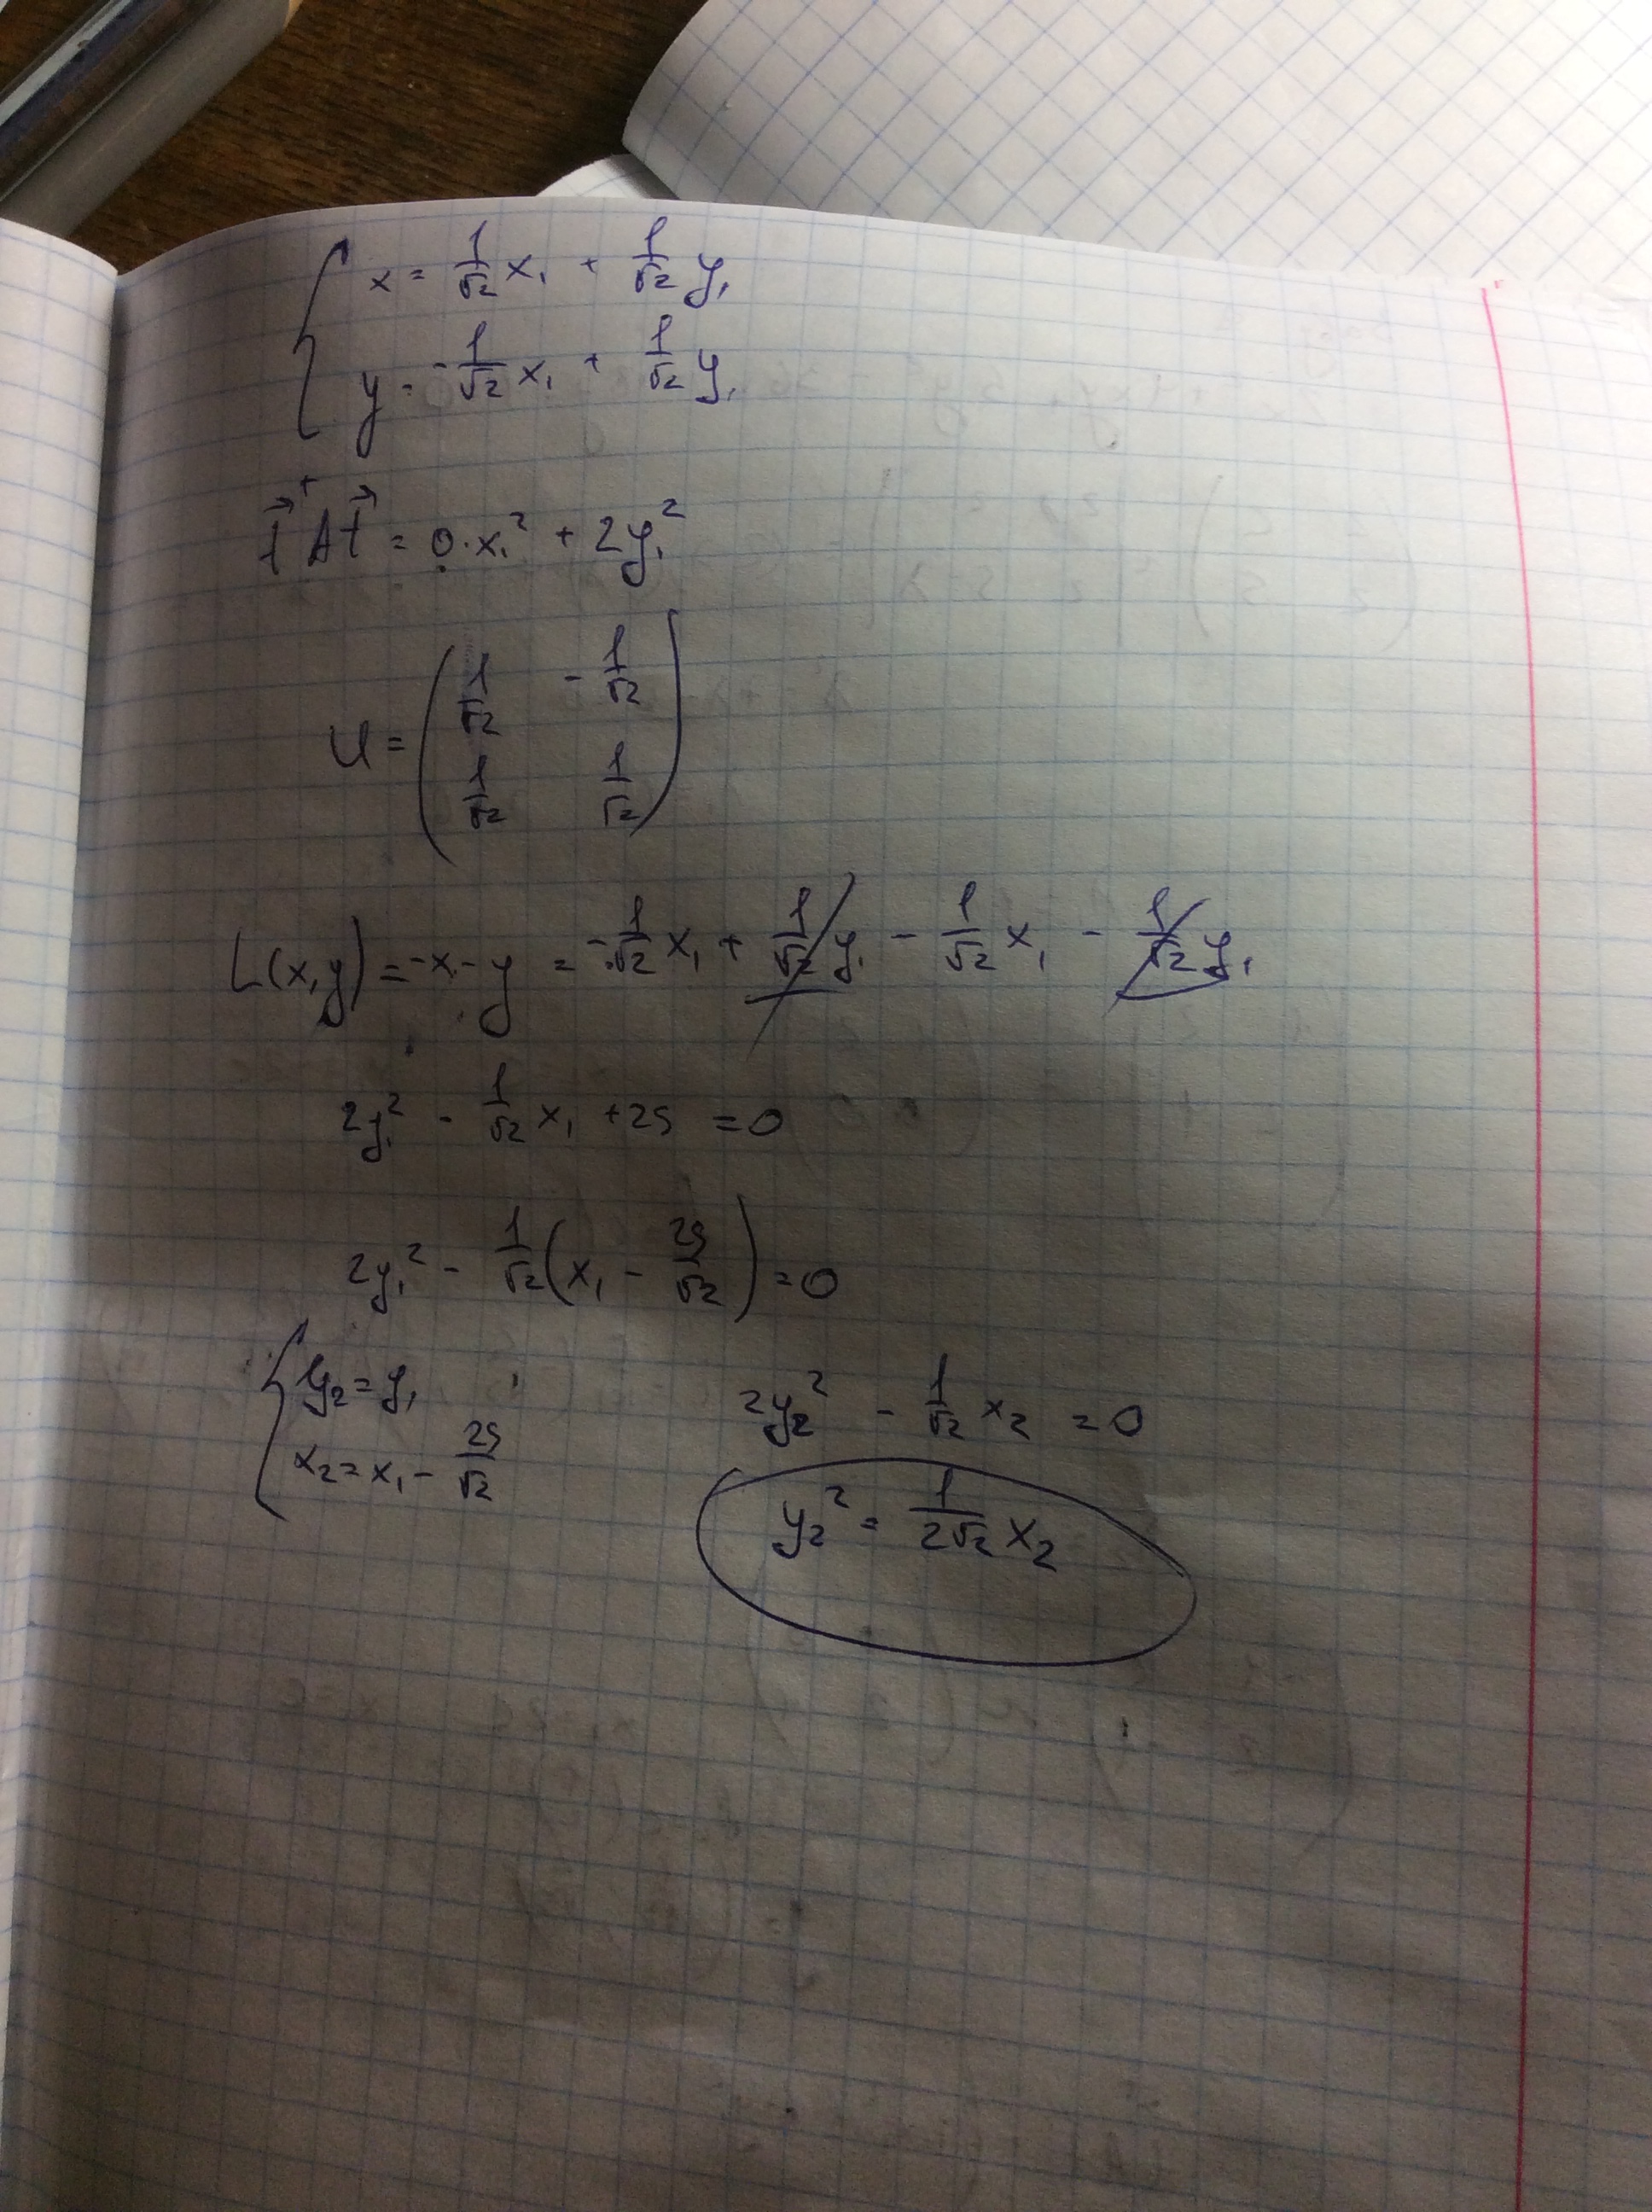 { x = 1/√2 x₁ + 1/√2 y₁
y = -1/√2 x₁ + 1/√2 y₁
t⃗ᵀ A t⃗ = 0·x₁² + 2y₁²
U = ( 1/√2 -1/√2
1/√2 1/√2 )
L(x,y) = -x - y = -1/√2 x₁ + 1/√2 y₁ - 1/√2 x₁ - 1/√2 y₁
2y₁² - 1/√2 x₁ + 25 = 0
2y₁² - 1/√2 (x₁ - 25/√2) = 0
{ y₂ = y₁
x₂ = x₁ - 25/√2
2y₂² - 1/√2 x₂ = 0
y₂² = 1/2√2 x₂